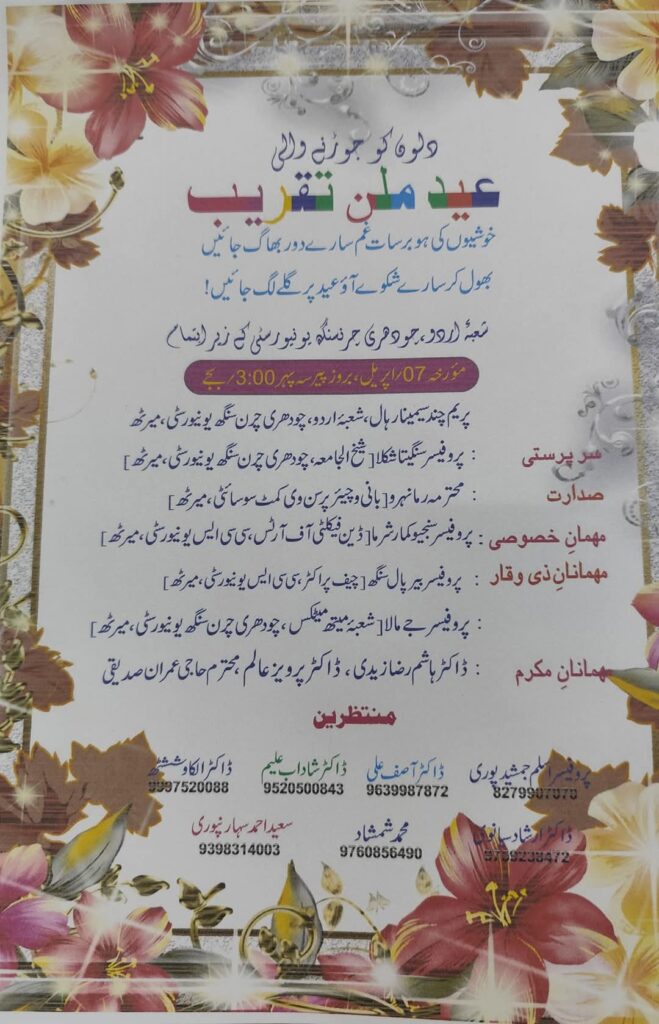 دلوں کو جوڑنے والی
عید ملن تقریب
خوشیوں کی ہو برسات غم سارے دور بھاگ جائیں
بھول کر سارے شکوے آؤ عید پر گلے لگ جائیں!
شعبۂ اردو، چودھری چرن سنگھ یونیورسٹی کے زیر اہتمام
مؤرخہ 07/اپریل، بروز پیر سہ پہر 3:00/بجے
پریم چند سیمینار ہال، شعبۂ اردو، چودھری چرن سنگھ یونیورسٹی، میرٹھ
سرپرستی : پروفیسر سنگیتا شکلا [شیخ الجامعہ، چودھری چرن سنگھ یونیورسٹی، میرٹھ]
صدارت : محترمہ رما نہرو [بانی و چیئر پرسن وی کمٹ سوسائٹی، میرٹھ]
مہمانِ خصوصی : پروفیسر سنجیو کمار شرما [ڈین فیکلٹی آف آرٹس، سی سی ایس یونیورسٹی، میرٹھ]
مہمانانِ ذی وقار : پروفیسر بیر پال سنگھ [چیف پراکٹر، سی سی ایس یونیورسٹی، میرٹھ]
: پروفیسر جے مالا [شعبۂ میتھ میٹکس، چودھری چرن سنگھ یونیورسٹی، میرٹھ]
مہمانانِ مکرم : ڈاکٹر ہاشم رضا زیدی، ڈاکٹر پرویز عالم، محترم حاجی عمران صدیقی
منتظرین
پروفیسر اسلم جمشید پوری ڈاکٹر آصف علی ڈاکٹر شاداب علیم ڈاکٹر الکا وششٹھ
9639987872 9520500843 9997520088
ڈاکٹر ارشاد سیانوی محمد شمشاد سعید احمد سہارنپوری
9760856490 9398314003